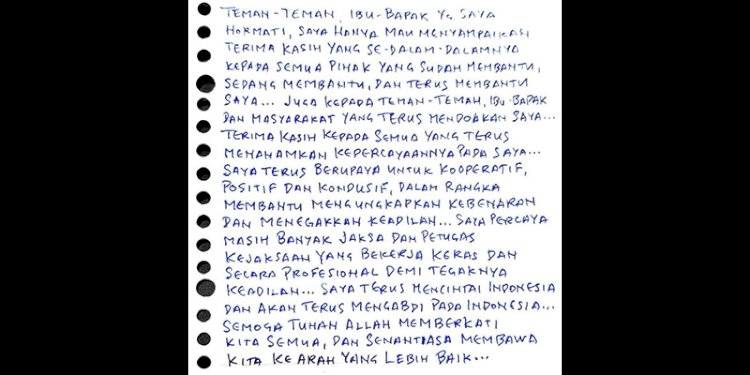 TEMAN-TEMAN, IBU-BAPAK Yg SAYA
HORMATI, SAYA HANYA MAU MENYAMPAIKAN
TERIMA KASIH YANG SE-DALAM-DALAMNYA
KEPADA SEMUA PIHAK YANG SUDAH MEMBANTU,
SEDANG MEMBANTU, DAN TERUS MEMBANTU
SAYA... JUGA KEPADA TEMAN-TEMAN, IBU-BAPAK
DAN MASYARAKAT YANG TERUS MENDOAKAN SAYA...
TERIMA KASIH KEPADA SEMUA YANG TERUS
MENANAMKAN KEPERCAYAANNYA PADA SAYA...
SAYA TERUS BERUPAYA UNTUK KOOPERATIF,
POSITIF DAN KONDUSIF, DALAM RANGKA
MEMBANTU MENGUNGKAPKAN KEBENARAN
DAN MENEGAKKAN KEADILAN... SAYA PERCAYA
MASIH BANYAK JAKSA DAN PETUGAS
KEJAKSAAN YANG BEKERJA KERAS DAN
SECARA PROFESIONAL DEMI TEGAKNYA
KEADILAN... SAYA TERUS MENCINTAI INDONESIA
DAN AKAN TERUS MENGABDI PADA INDONESIA...
SEMOGA TUHAN ALLAH MEMBERKATI
KITA SEMUA, DAN SENANTIASA MEMBAWA
KITA KE ARAH YANG LEBIH BAIK...